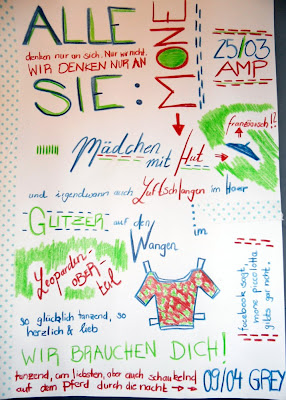 ALLE
denken nur an sich. Nur wir nicht.
WIR DENKEN NUR AN
SIE:
MONE
25/03
AMP
französisch!?
Mädchen
mit Hut
und irgendwann auch Luftschlangen im Haar
GLITZER auf den
Wangen
im
Leoparden-
OBER-
teil
so glücklich tanzend, so
herzlich & lieb
facebook sagt,
simone piccolotta
gibts gar nicht.
WIR BRAUCHEN DICH!
tanzend, am liebsten, aber auch schaukelnd
auf dem Pferd durch die nacht
09/04 GREY